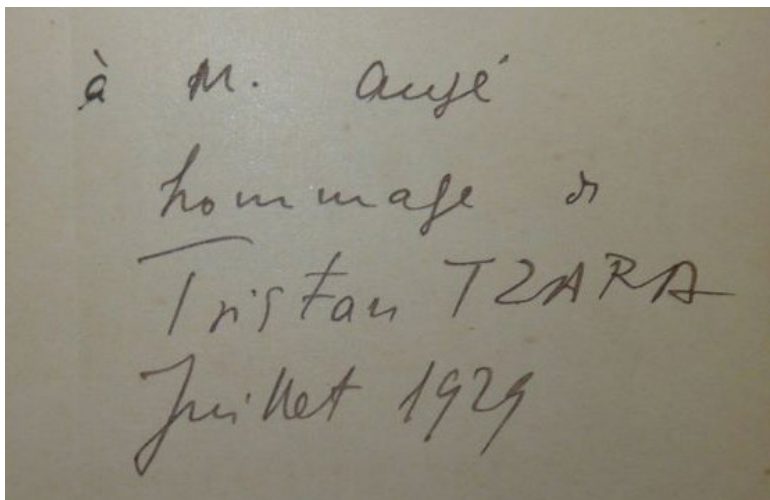 à M. Augé
hommage de
Tristan TZARA
Juillet 1929